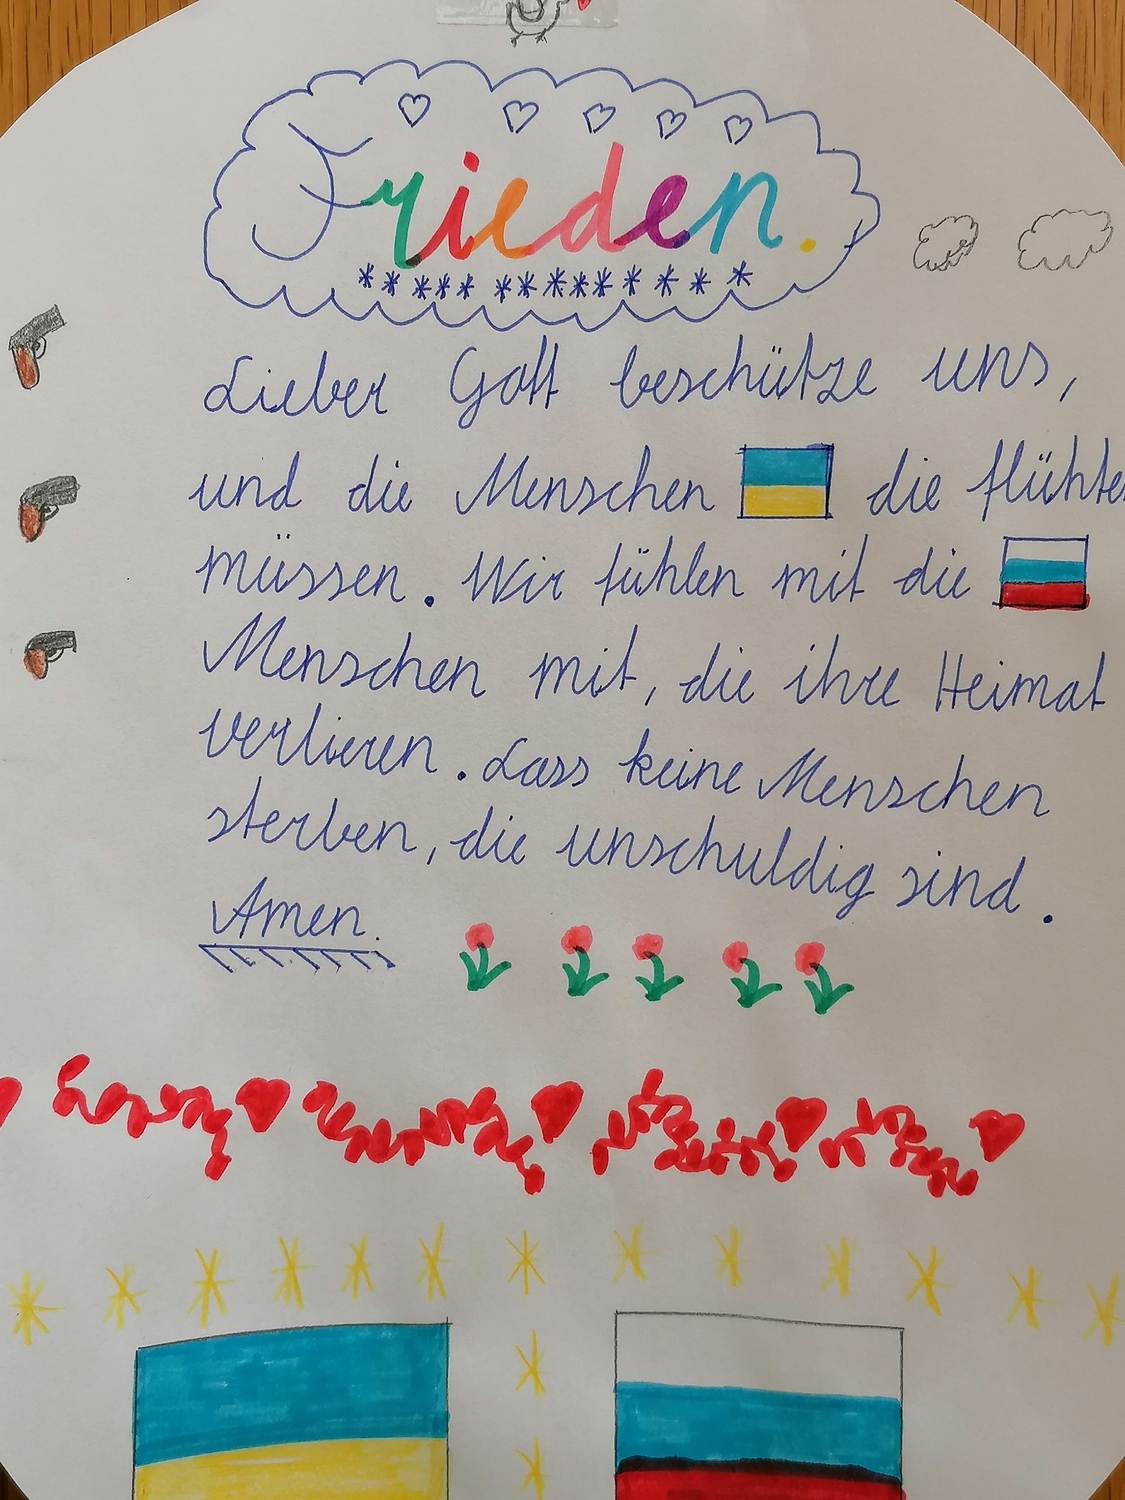 Frieden.
Lieber Gott beschütze uns,
und die Menschen die flühten
müssen. Wir fühlen mit die
Menschen mit, die ihre Heimat
verlieren. Lass keine Menschen
sterben, die unschuldig sind.
Amen.